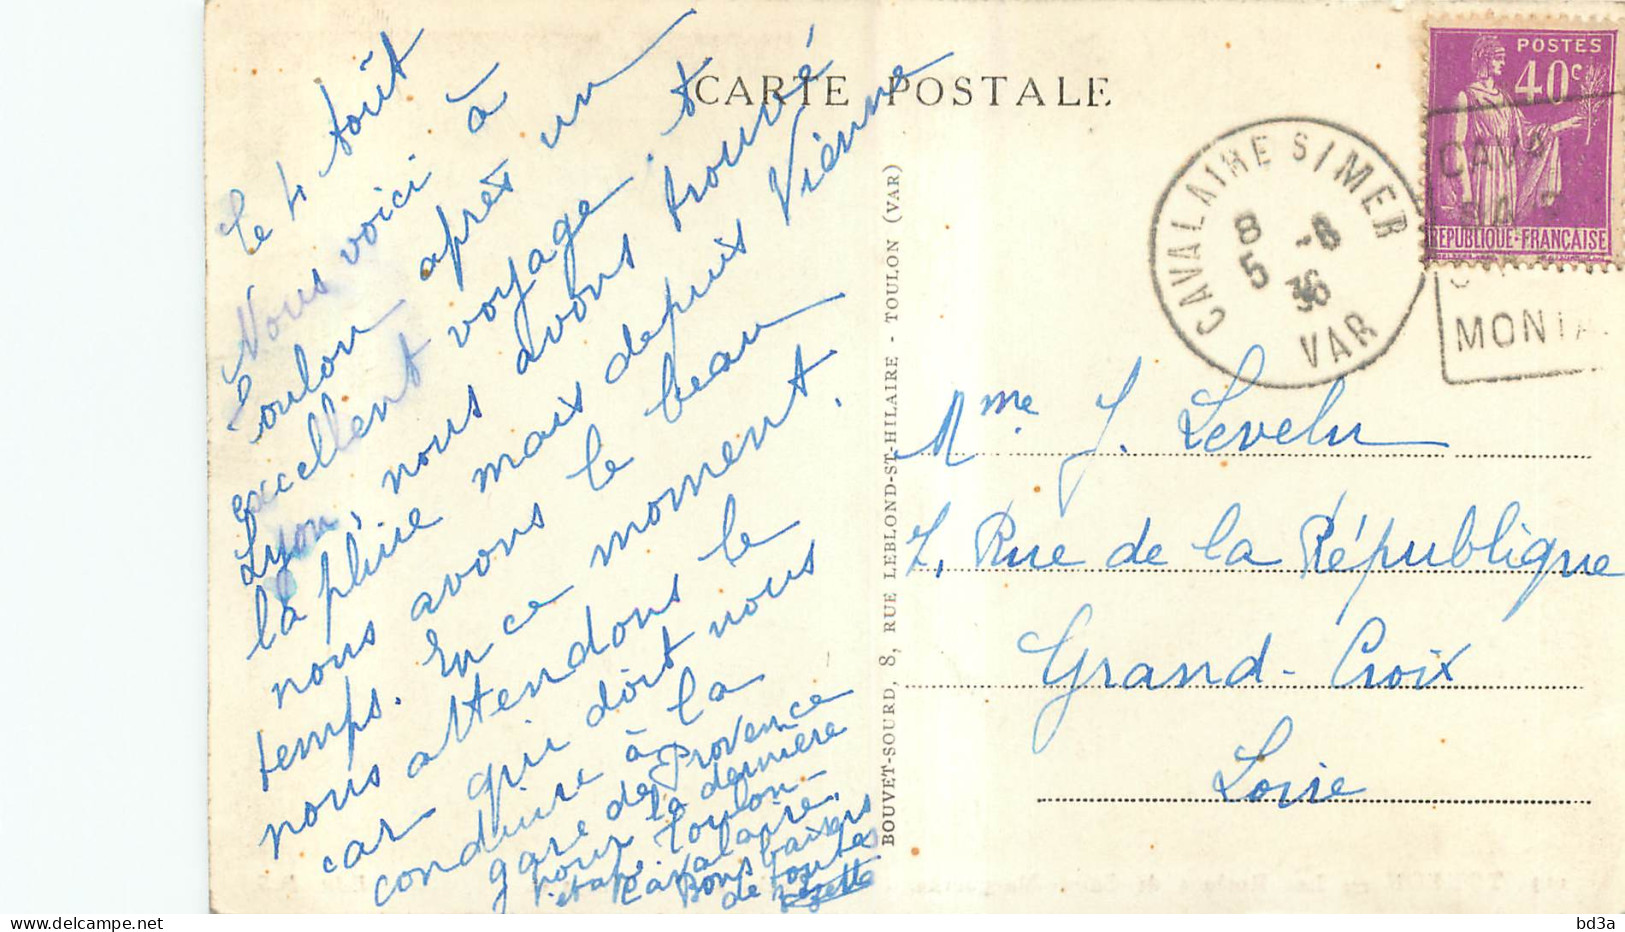 CARTE POSTALE
le 4 août
Nous voici à
Toulon après un
excellent voyage. et
Lyon, nous avons trouvé
la pluie mais depuis Vienne
nous avons le beau
temps. En ce moment.
nous attendons le
car qui doit nous
conduire à la
gare de Provence
pour la dernière
étape, Toulon-
Cavalaire.
Bons baisers
de toutes
BOUVET-SOURD, 8, RUE LEBLOND-ST-HILAIRE - TOULON (VAR)
POSTES
40c
REPUBLIQUE-FRANÇAISE
CAVALAIRE S/MER
8 -8
5 36
VAR
CAV
MONTA
Mme J. Levelu
7, Rue de la République
Grand-Croix
Loire
bd3a